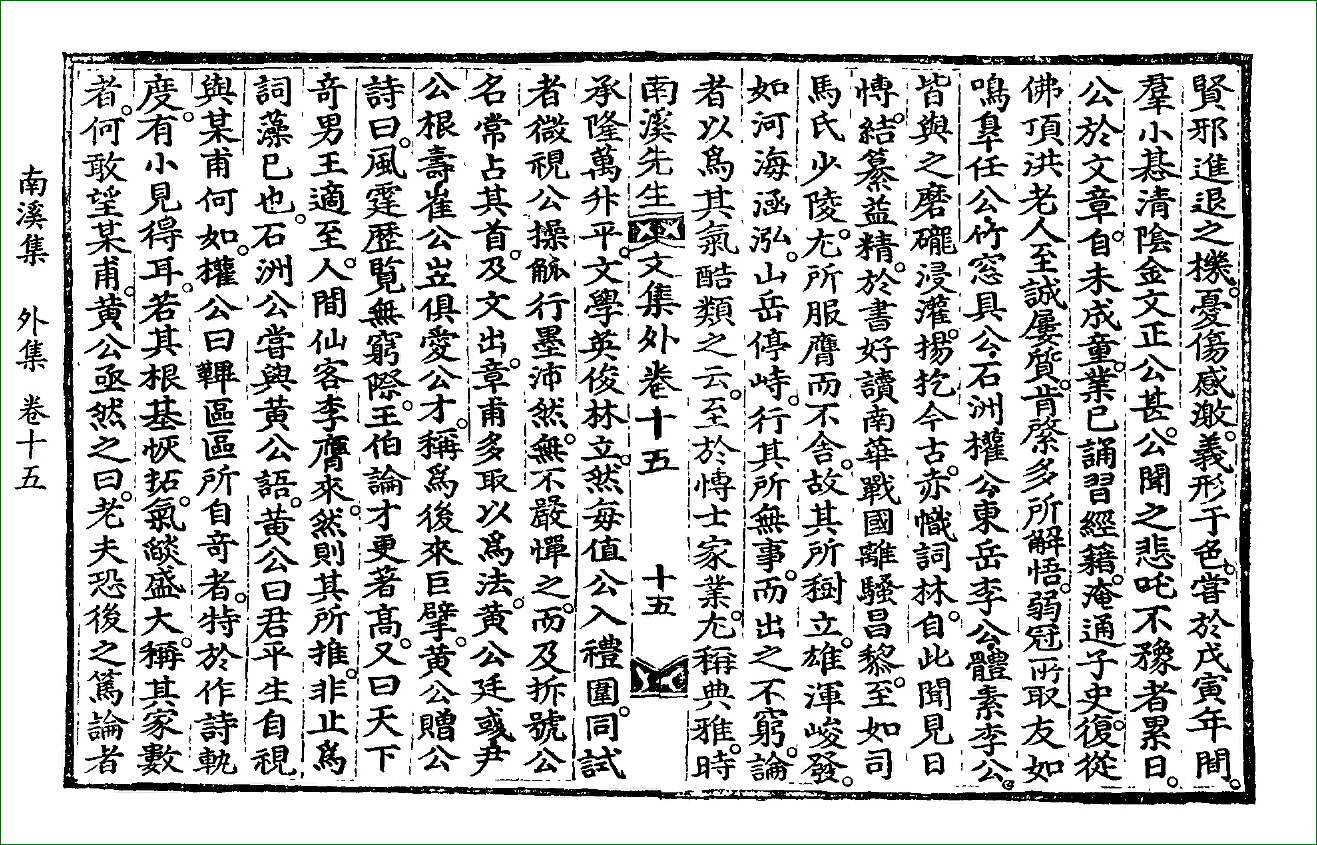 賢邪進退之機。憂傷感激。義形于色。嘗於戊寅年間。
羣小惎清陰金文正公甚。公聞之悲吒不豫者累日。
公於文章。自未成童。業已誦習經籍。淹通子史。復從
佛頂洪老人至誠屢質。肯綮多所解悟。弱冠所取友如
鳴臯任公竹窓具公石洲權公東岳李公體素李公。
皆與之磨礲浸灌。揚扢今古。赤幟詞林。自此聞見日
博。結纂益精。於書好讀南華戰國離騷昌黎。至如司
馬氏少陵。尤所服膺而不舍。故其所樹立。雄渾峻發。
如河海涵泓。山岳停峙。行其所無事。而出之不窮。論
者以爲其氣酷類之云。至於博士家業。尤稱典雅。時
南溪先生文集外卷十五 十五
承隆萬升平。文學英俊林立。然每値公入禮圍。同試
者微視公操觚行墨沛然。無不嚴憚之。而及拆號公
名常占其首。及文出。章甫多取以爲法。黃公廷彧尹
公根壽崔公岦俱愛公才。稱爲後來巨擘。黃公贈公
詩曰。風霆歷覽無窮際。王伯論才更著高。又曰天下
奇男王適至。人間仙客李膺來。然則其所推。非止爲
詞藻已也。石洲公嘗與黃公語。黃公曰君平生自視
與某甫何如。權公曰韠區區所自奇者。特於作詩軌
度。有小見得耳。若其根基恢拓。氣燄盛大。稱其家數
者。何敢望某甫。黃公亟然之曰。老夫恐後之篤論者
南溪集 外集 卷十五